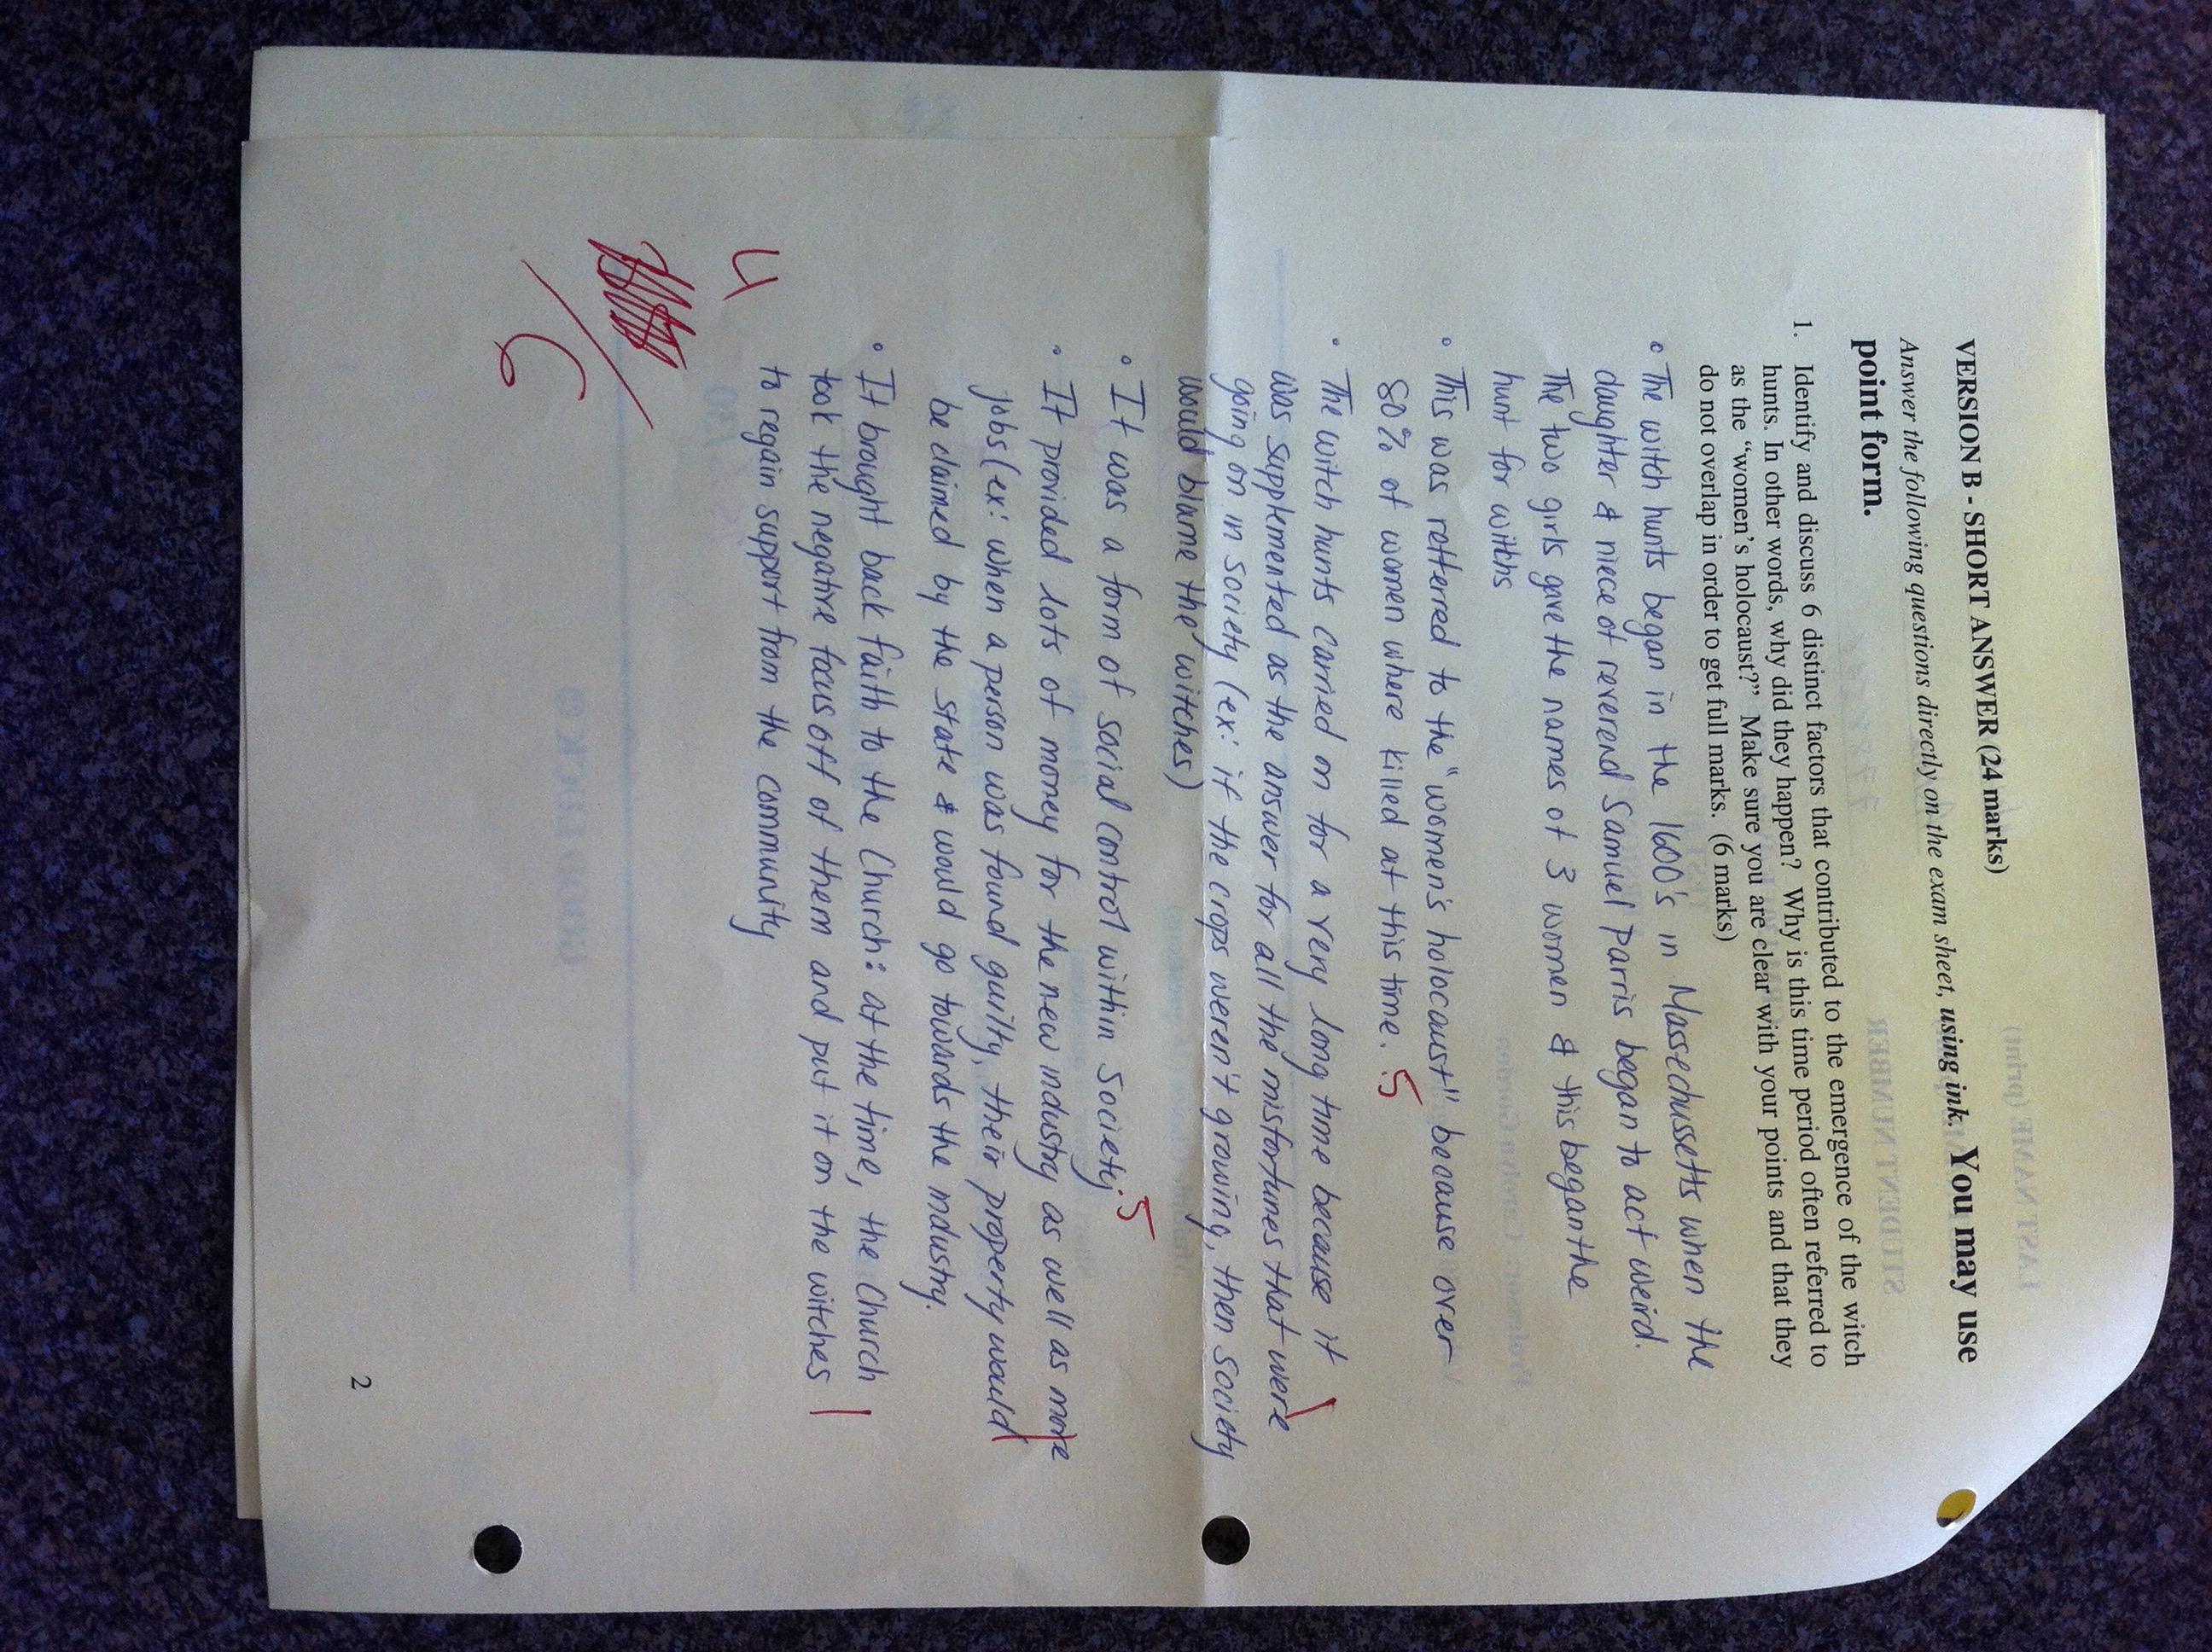 VERSION B - SHORT ANSWER (24 marks)
Answer the following questions directly on the exam sheet, using ink. You may use
point form.
1. Identify and discuss 6 distinct factors that contributed to the emergence of the witch
hunts. In other words, why did they happen? Why is this time period often referred to
as the "women's holocaust?" Make sure you are clear with your points and that they
do not overlap in order to get full marks. (6 marks)
• The witch hunts began in the 1600's in Massechussetts when the
daughter & niece of reverend Samuel Parris began to act weird.
The two girls gave the names of 3 women & this began the
hunt for withhs
• This was reterred to the "women's holocaust" because over
80% of women where killed at this time. .5
• The witch hunts carried on for a very long time because it
was supplemented as the answer for all the misfortunes that were 1
going on in society (ex: if the crops weren't growing, then society
would blame the witches)
• It was a form of social control within society. .5
• It provided lots of money for the new industry as well as more
jobs (ex: when a person was found guilty, their property would 1
be claimed by the state & would go towards the industry.
• It brought back faith to the Church: at the time, the Church
took the negative focus off of them and put it on the witches 1
to regain support from the community
4
/6
2